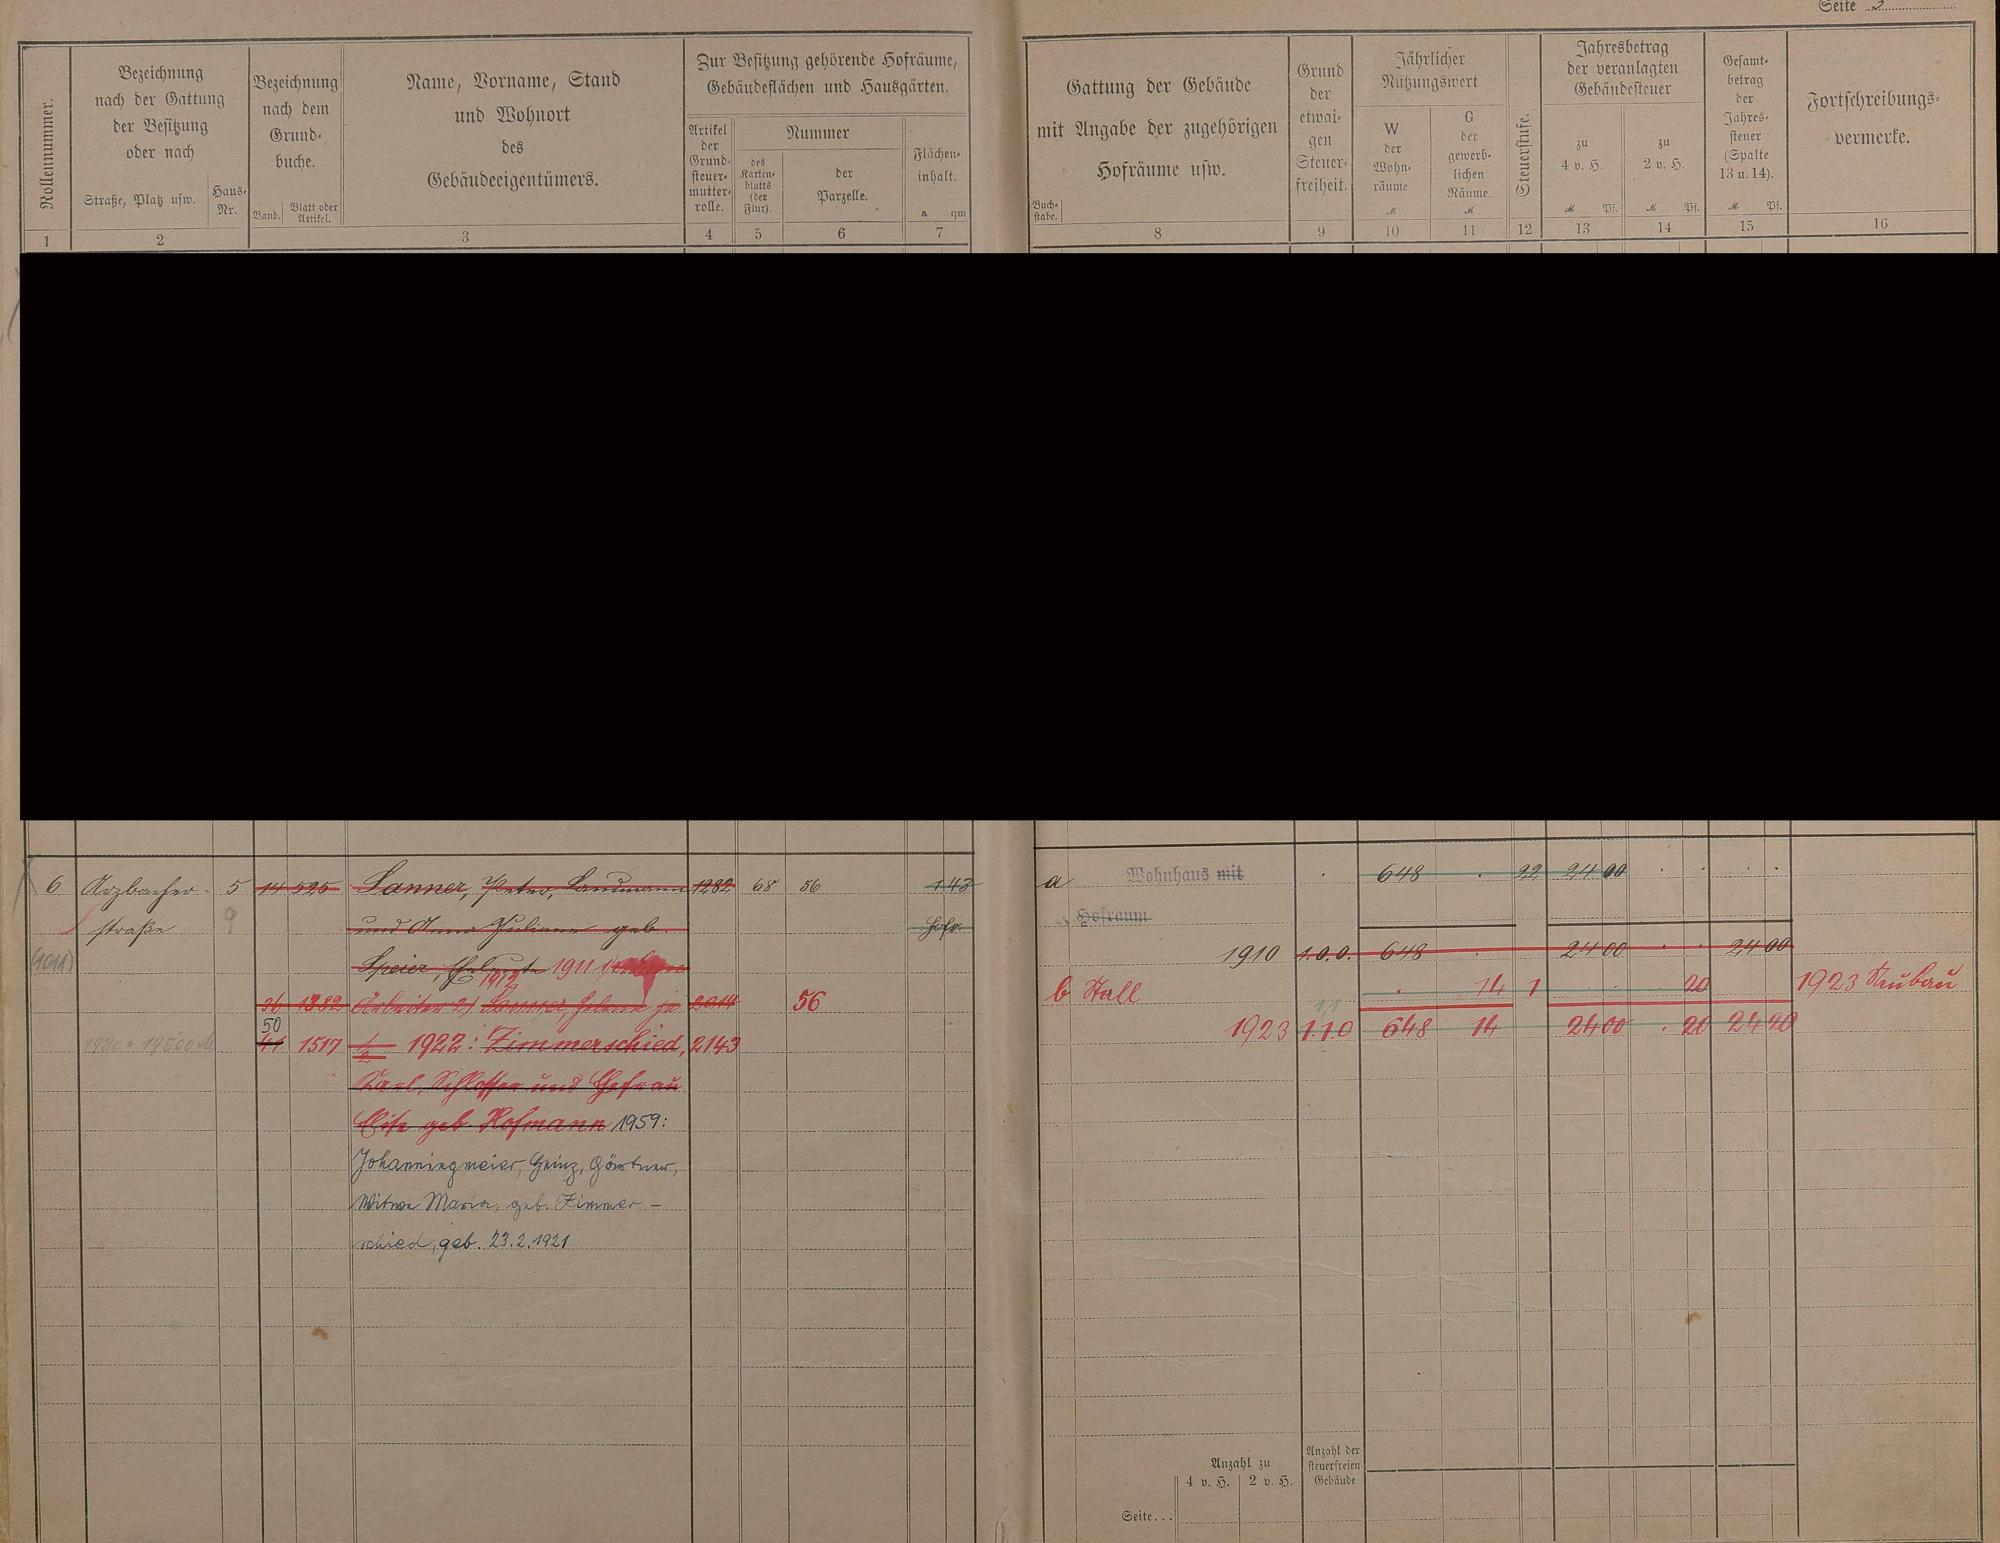 Seite 3
Rollennummer.
Bezeichnung
nach der Gattung
der Besitzung
oder nach
Straße, Platz usw.
Haus-
Nr.
Bezeichnung
nach dem
Grund-
buche.
Band.
Blatt oder
Artikel.
Name, Vorname, Stand
und Wohnort
des
Gebäudeeigentümers.
Zur Besitzung gehörende Hofräume,
Gebäudeflächen und Hausgärten.
Artikel
der
Grund-
steuer-
mutter-
rolle.
Nummer
des
Karten-
blatts
(der
Flur).
der
Parzelle.
Flächen-
inhalt.
a qm
1 2 3 4 5 6 7
Gattung der Gebäude
mit Angabe der zugehörigen
Hofräume usw.
Buch-
stabe.
Grund
der
etwai-
gen
Steuer-
freiheit.
Jährlicher
Nutzungswert
W
der
Wohn-
räume.
M
G
der
gewerb-
lichen
Räume.
M
Steuerstufe.
Jahresbetrag
der veranlagten
Gebäudesteuer
zu
4 v. H.
M Pf.
zu
2 v. H.
M Pf.
Gesamt-
betrag
der
Jahres-
steuer
(Spalte
13 u. 14).
M Pf.
Fortschreibungs-
vermerke.
8 9 10 11 12 13 14 15 16
6 Arzbacher- 5 14 525 Sanner, Peter, Landmann 1282 68 56 143
straße 9 und Anna Juliane geb. Hofr.
Speier, Eheleute 1911
1912
36 1382 Arbeiter 2) Sanner, Helene je 2014 56
50
41 1517 1/2 1922: Zimmerschied, 2143
Karl, Schlosser und Ehefrau
Elise geb. Hofmann 1959:
Johanningmeier, Heinz, Gärtner,
Witwe Maria, geb. Zimmer-
schied, geb. 23.2.1921
a Wohnhaus mit . 648 . 22 24 00 . . . .
Hofraum
1910 1.0.0. 648 . 24 00 . . 24 00
b Stall . 14 1 . . 20 1923 Neubau
1,1
1923 1.1.0 648 14 24 00 . 20 24 20
Anzahl zu
4 v. H. 2 v. H.
Anzahl der
steuerfreien
Gebäude
Seite...